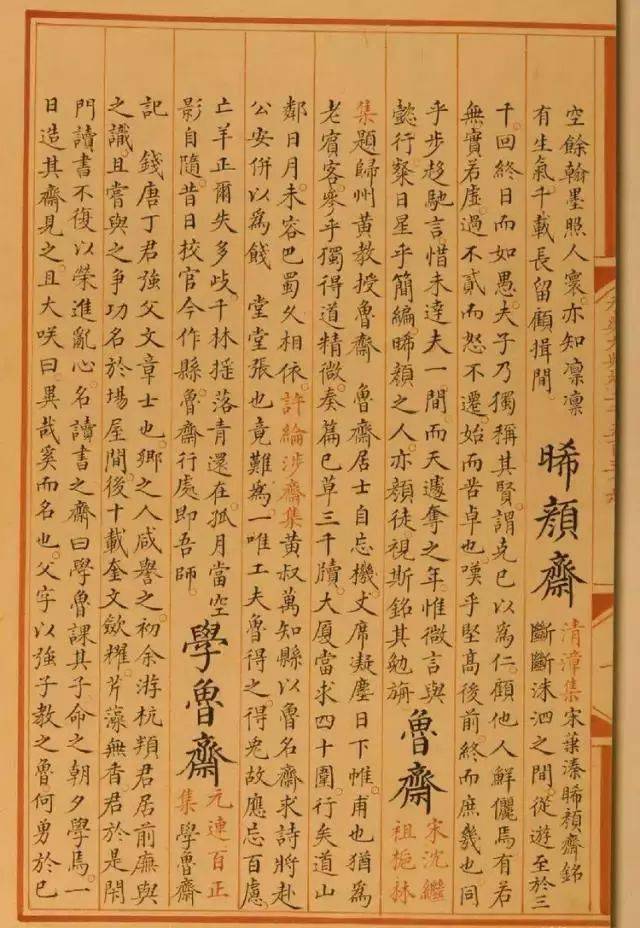 空餘翰墨照人寰。亦知凜凜
有生氣。千載長留顧揖間。
晞顏齋
清漳集宋葉溱晞顏齋銘
斷斷洙泗之間。從遊至於三
千。回終日而如愚。夫子乃獨稱其賢。謂克己以為仁。顧他人鮮儷焉。有若
無實若虛。過不貳而怒不遷。始而苦卓也。嘆乎堅高後前。終而庶幾也。同
乎步趍馳言。惜未達夫一間。而天遽奪之年。惟微言與
懿行。粲日星乎簡編。晞顏之人。亦顏徒視斯銘其勉旃
魯齋
宋沈繼
祖梔林
集題歸州黃教授魯齋 魯齋居士自忘機。丈席凝塵日下帷。甫也猶為
老賓客。參乎獨得道精微。奏篇已草三千牘。大廈當求四十圍。行矣道山
鄰日月。未容巴蜀久相依。許綸涉齋集黃叔萬知縣以魯名齋求詩將赴
公安併以為餞 堂堂張也竟難為。一唯工夫魯得之。得兔故應忘百慮
亡羊正爾失多歧。千林搖落青還在。孤月當空
影自隨。昔日校官今作縣。魯齋行處即吾師。
學魯齋
元連百正
集學魯齋
記 錢唐丁君強父文章士也。鄉之人咸譽之。初余游杭。類君居前廡與
之識。且嘗與之爭功名於場屋間。後十載奎文歛耀。芹藻無香。君於是閇
門讀書。不復以榮進亂心。名讀書之齋曰學魯。課其子命之朝夕學焉。一
日造其齋見之。且大咲曰。異哉奚而名也。父字以強。子教之魯。何勇於己